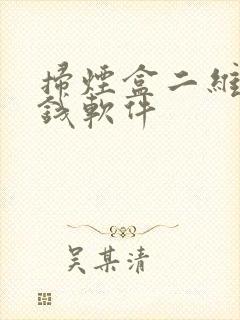 掃煙盒二維
錢軟件
吳某清